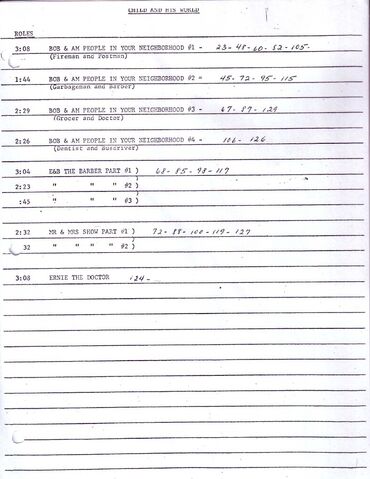 CHILD AND HIS WORLD
ROLES
3:08 BOB & AM PEOPLE IN YOUR NEIGHBORHOOD #1 - 23-48-60-82-105-
(Fireman and Postman)
1:44 BOB & AM PEOPLE IN YOUR NEIGHBORHOOD #2 = 45-72-95-115
(Garbageman and Barber)
2:29 BOB & AM PEOPLE IN YOUR NEIGHBORHOOD #3 - 67-87-129
(Grocer and Doctor)
2:26 BOB & AM PEOPLE IN YOUR NEIGHBORHOOD #4 - 106-126
(Dentist and Busdriver)
3:04 E&B THE BARBER PART #1 ) 68-85-98-117
2:23 " " " #2 )
:45 " " " #3 )
2:32 MR & MRS SHOW PART #1 ) 72-88-100-119-127
32 " " " " #2 )
3:08 ERNIE THE DOCTOR 124-